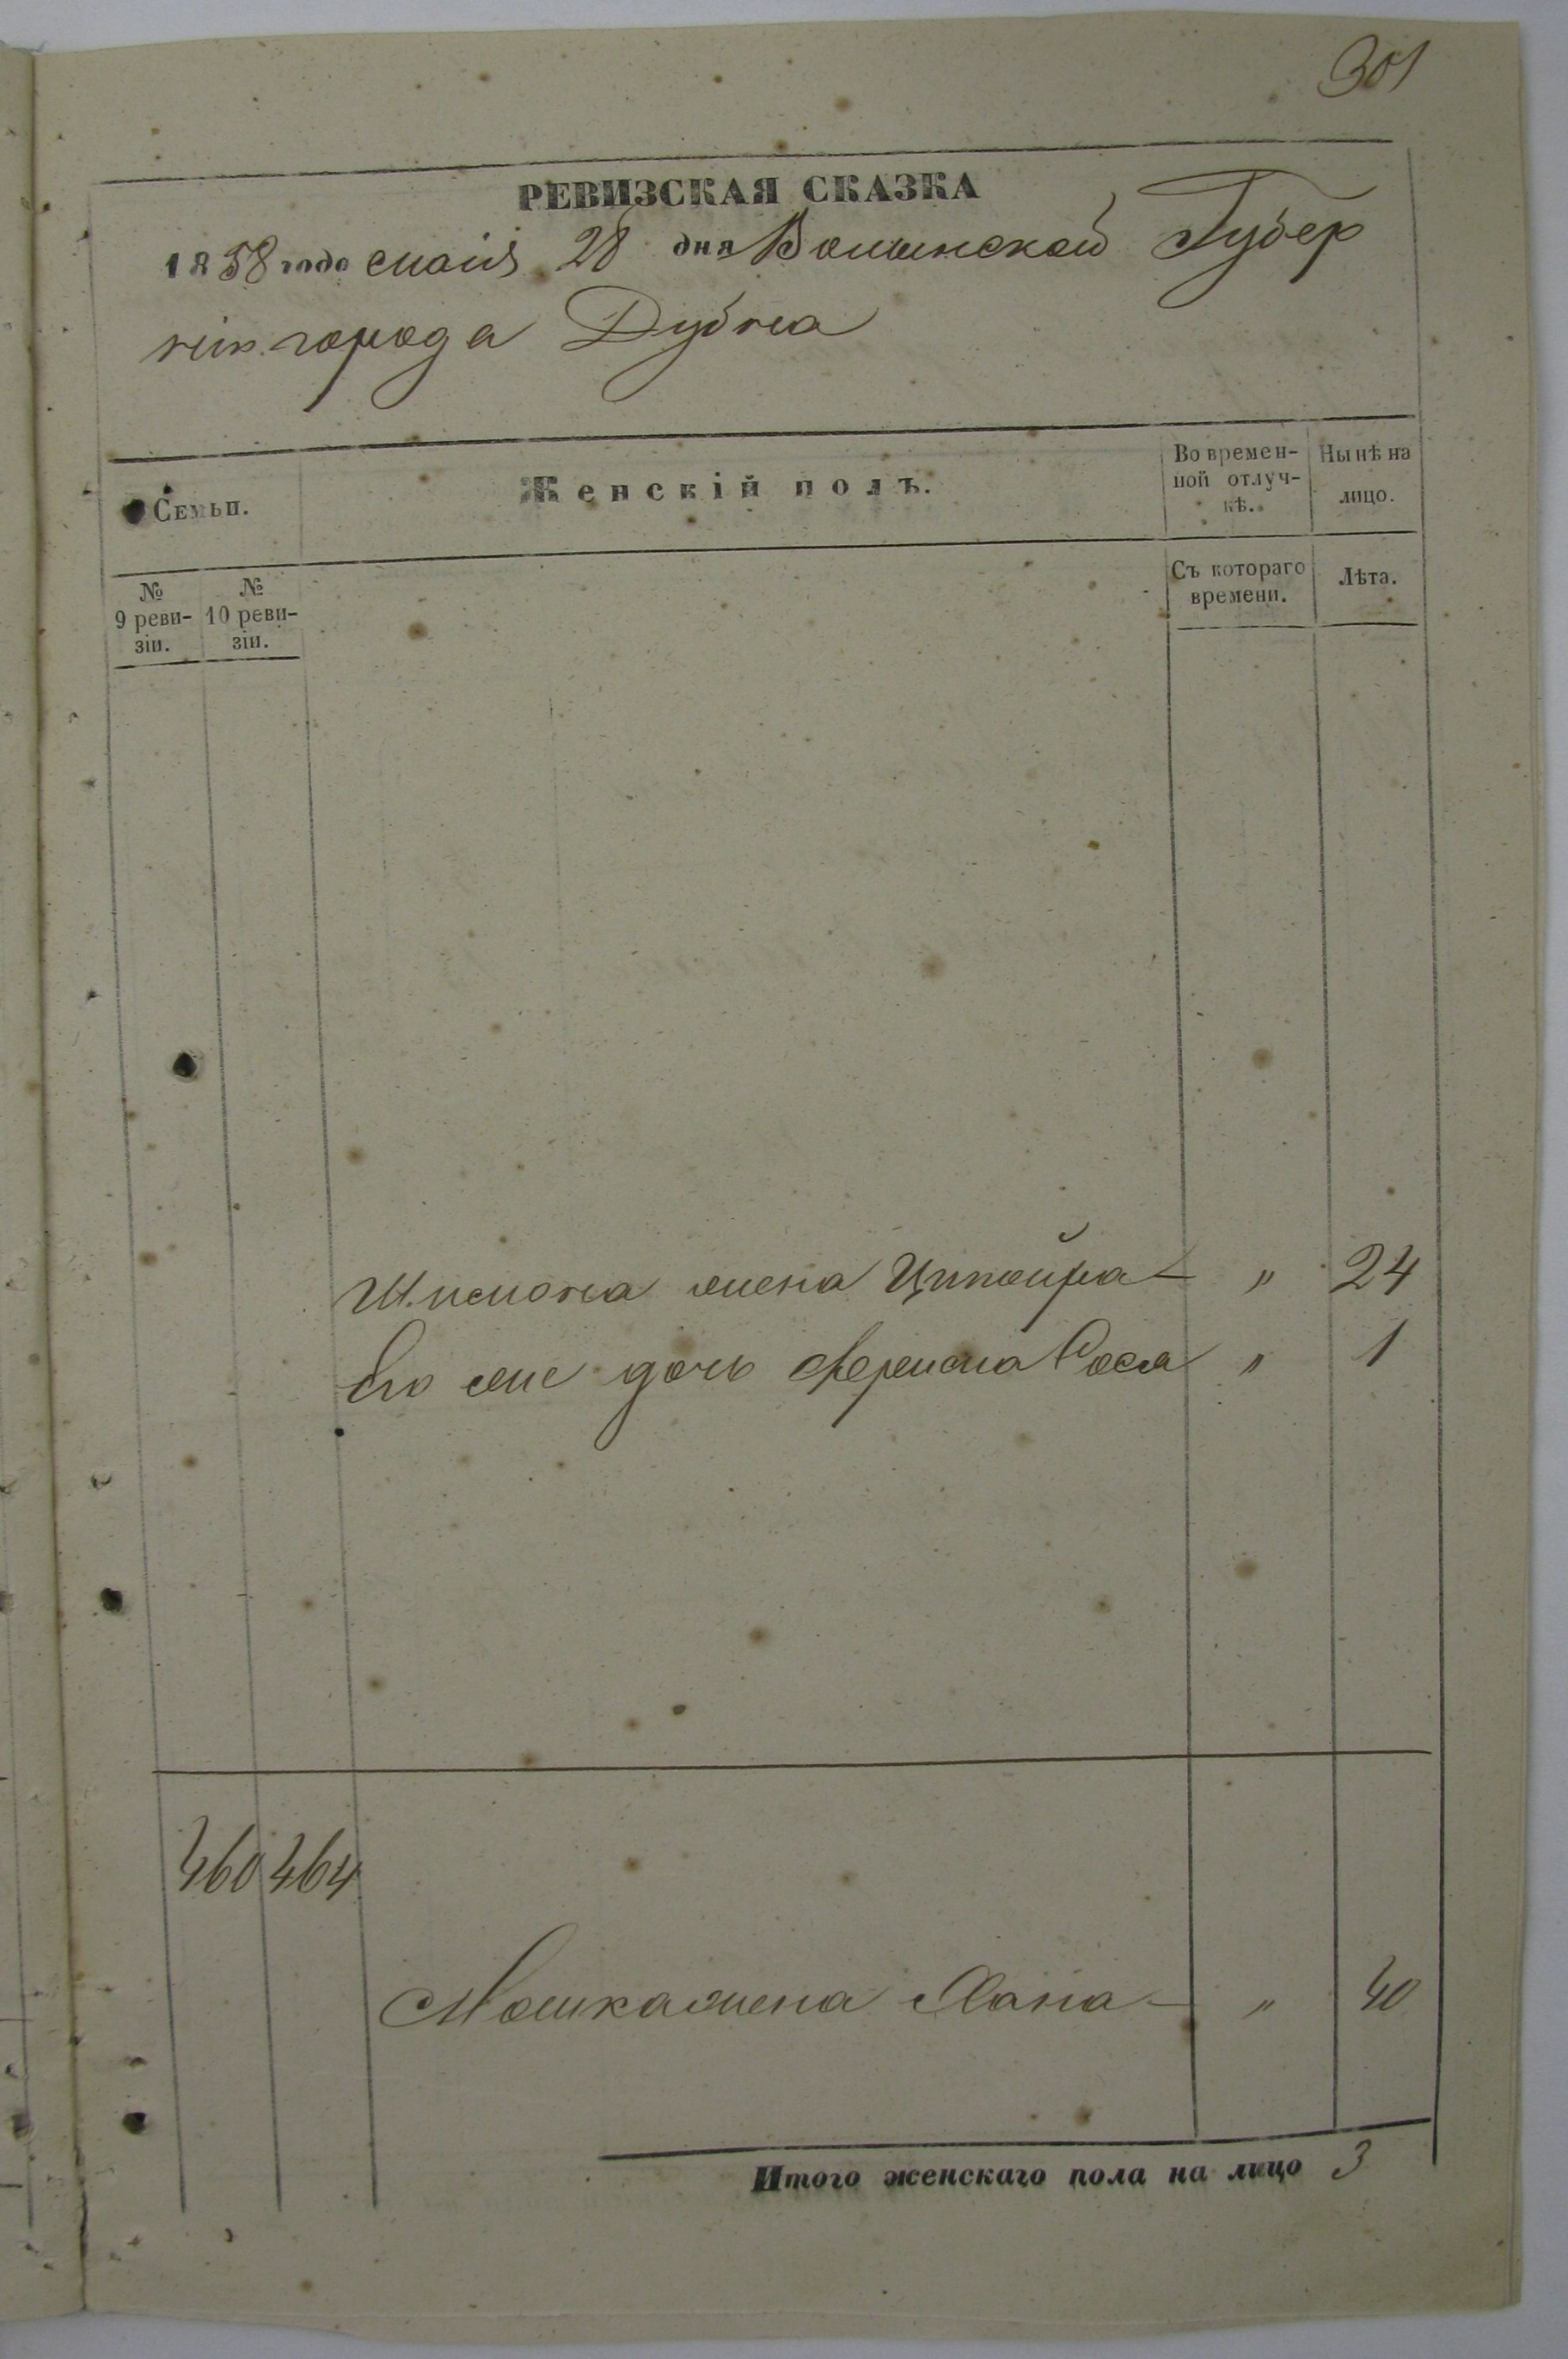 301
РЕВИЗСКАЯ СКАЗКА
1858 года маия 28 дня Волынской Губер
ніи города Дубна
Семьи.
Женскій полъ.
Во времен-
ной отлуч-
кѣ.
Нынѣ на
лицо.
№
9 реви-
зіи.
№
10 реви-
зіи.
Съ котораго
времени.
Лѣта.
жена Ципойра — " 24
Его же дочь Фрейма Рося " 1
460 464
Мошка жена Хана — " 40
Итого женскаго пола на лицо 3